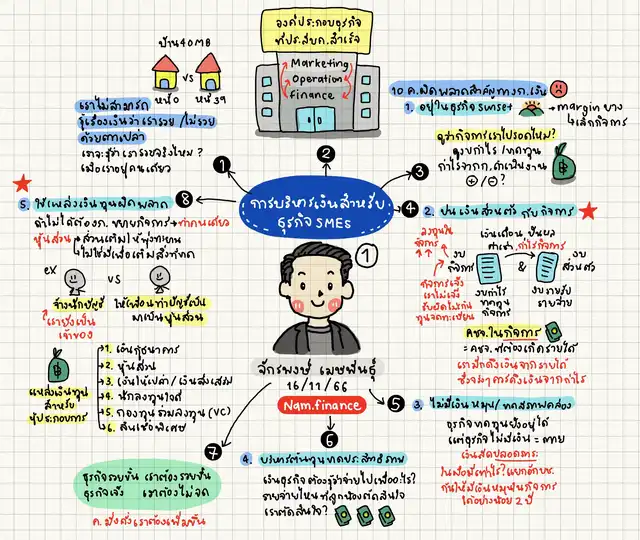 องค์ประกอบธุรกิจ
ที่ปร.สบค.สำเร็จ
Marketing
Operation
finance
บ้าน 40 MB
VS
หนี้ 0
หนี้ 39
เราไม่สามารถ
รู้เรื่องเงินว่าเรารวย / ไม่รวย
ด้วยตาเปล่า
เราจะรู้ว่าเรารวยจริงไหม ?
เมื่อเราอยู่คนเดียว
1
2
3
4
5
6
7
8
การบริหารเงินสำหรับ
ธุรกิจ SMEs
10 ค.ผิดพลาดสำคัญทางก.เงิน
1. อยู่ในธุรกิจ sunset
→ margin บาง
↳ เลิกกิจการ
ดูว่ากิจการเราไปรอดไหม?
ดูงบกำไร / ขาดทุน
กำไรจากก.ดำเนินงาน
+ / - ?
2. ปนเงินส่วนตัว กับ กิจการ
ลงทุนใน
กิจการ
เงินเดือน ปันผล
ค่าเช่า กำไรกิจการ
งบ
กิจการ
&
งบ
ส่วนตัว
กิจการเจ๊ง
เราไม่เจ๊ง
รับผิดไม่เกิน
ทุนจดทะเบียน
งบกำไร
ขาดทุน
กิจการ
งบรายรับ
รายจ่าย
คชจ.ในกิจการ
= คชจ.ที่ต้องเกิดรายได้
เรามักดึงเงินจากรายได้
ซึ่งจริงๆควรดึงเงินจากกำไร
5. ใช้แหล่งเงินทุนผิดพลาด
ถ้าไม่ได้ต้องก. ขยายกิจการ → ทำคนเดียว
หุ้นส่วน → ส่วนเติมให้พุ่งทะยาน
ไม่ใช่มีเพื่อเติมสิ่งที่ขาด
ex
VS
จ้างนักบัญชี
ให้เพื่อนทำบัญชีเป็น
มาเป็นหุ้นส่วน
เรายังเป็น
เจ้าของ
แหล่งเงินทุน
สำหรับ
ผู้ประกอบการ
1. เงินกู้ธนาคาร
2. หุ้นส่วน
3. เงินให้เปล่า / เงินส่งเสริม
4. นักลงทุนใจดี
5. กองทุนร่วมลงทุน (VC)
6. สินเชื่อพิเศษ
1
จักรพงษ์ เมษพันธุ์
16/11/66
Nam.finance
3. ไม่มีเงินหมุน / ขาดสภาพคล่อง
ธุรกิจขาดทุนยังอยู่ได้
แต่ธุรกิจไม่มีเงิน = ตาย
เงินสดปลอดภาระ
ในมือมีเท่าไร? แยกอีกบช.
กันให้มีเงินหมุนในกิจการ
ได้อย่างน้อย 2 ปี
4. บริหารต้นทุนขาดประสิทธิภาพ
เงินธุรกิจต้องรู้ว่าจ่ายไปเพื่ออะไร?
รายจ่ายไหนที่ลูกน้องตัดสินใจ
เราตัดสินใจ?
ธุรกิจรวยขึ้น เราต้องรวยขึ้น
ธุรกิจเจ๊ง เราต้องไม่จด
ค.มั่งคั่งเราต้องเพิ่มขึ้น